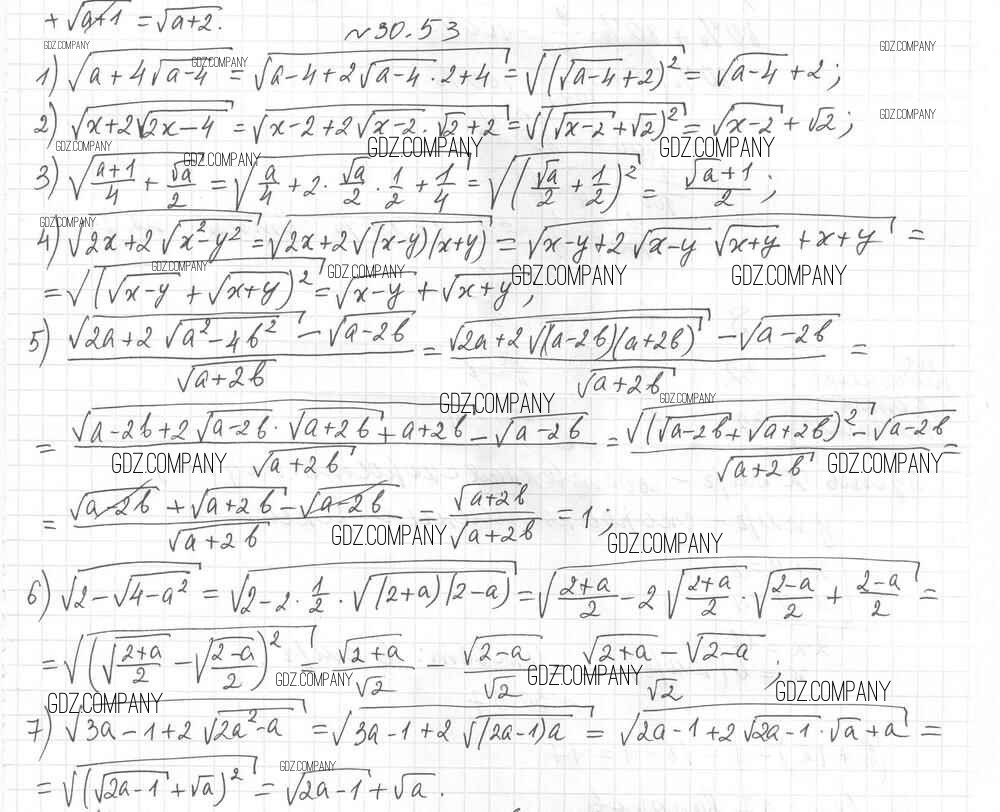 + √(a+1) = √(a+2).
№30.53
GDZ.COMPANY GDZ.COMPANY GDZ.COMPANY
1) √(a+4√(a-4)) = √(a-4+2√(a-4)·2+4) = √((√(a-4)+2)²) = √(a-4)+2;
2) √(x+2√(2x-4)) = √(x-2+2√(x-2)·√2+2) = √((√(x-2)+√2)²) = √(x-2)+√2;
GDZ.COMPANY
GDZ.COMPANY GDZ.COMPANY GDZ.COMPANY GDZ.COMPANY
3) √((a+1)/4 + √a/2) = √(a/4 + 2·√a/2·1/2 + 1/4) = √((√a/2 + 1/2)²) = (√a+1)/2;
GDZ.COMPANY
4) √(2x+2√(x²-y²)) = √(2x+2√((x-y)(x+y))) = √(x-y+2√(x-y)√(x+y)+x+y) =
GDZ.COMPANY GDZ.COMPANY GDZ.COMPANY GDZ.COMPANY
= √((√(x-y)+√(x+y))²) = √(x-y)+√(x+y);
5) (√(2a+2√(a²-4b²)) - √(a-2b))/√(a+2b) = (√(2a+2√((a-2b)(a+2b))) - √(a-2b))/√(a+2b) =
GDZ.COMPANY GDZ.COMPANY
= (√(a-2b+2√(a-2b)·√(a+2b)+a+2b) - √(a-2b))/√(a+2b) = (√((√(a-2b)+√(a+2b))²) - √(a-2b))/√(a+2b) =
GDZ.COMPANY GDZ.COMPANY
= (√(a-2b) + √(a+2b) - √(a-2b))/√(a+2b) = √(a+2b)/√(a+2b) = 1;
GDZ.COMPANY GDZ.COMPANY
6) √(2-√(4-a²)) = √(2-2·1/2·√((2+a)(2-a))) = √((2+a)/2 - 2√((2+a)/2)·√((2-a)/2) + (2-a)/2) =
= √((√((2+a)/2) - √((2-a)/2))²) = √(2+a)/√2 - √(2-a)/√2 = (√(2+a) - √(2-a))/√2;
GDZ.COMPANY GDZ.COMPANY GDZ.COMPANY GDZ.COMPANY
7) √(3a-1+2√(2a²-a)) = √(3a-1+2√((2a-1)a)) = √(2a-1+2√(2a-1)·√a+a) =
GDZ.COMPANY
= √((√(2a-1)+√a)²) = √(2a-1)+√a.